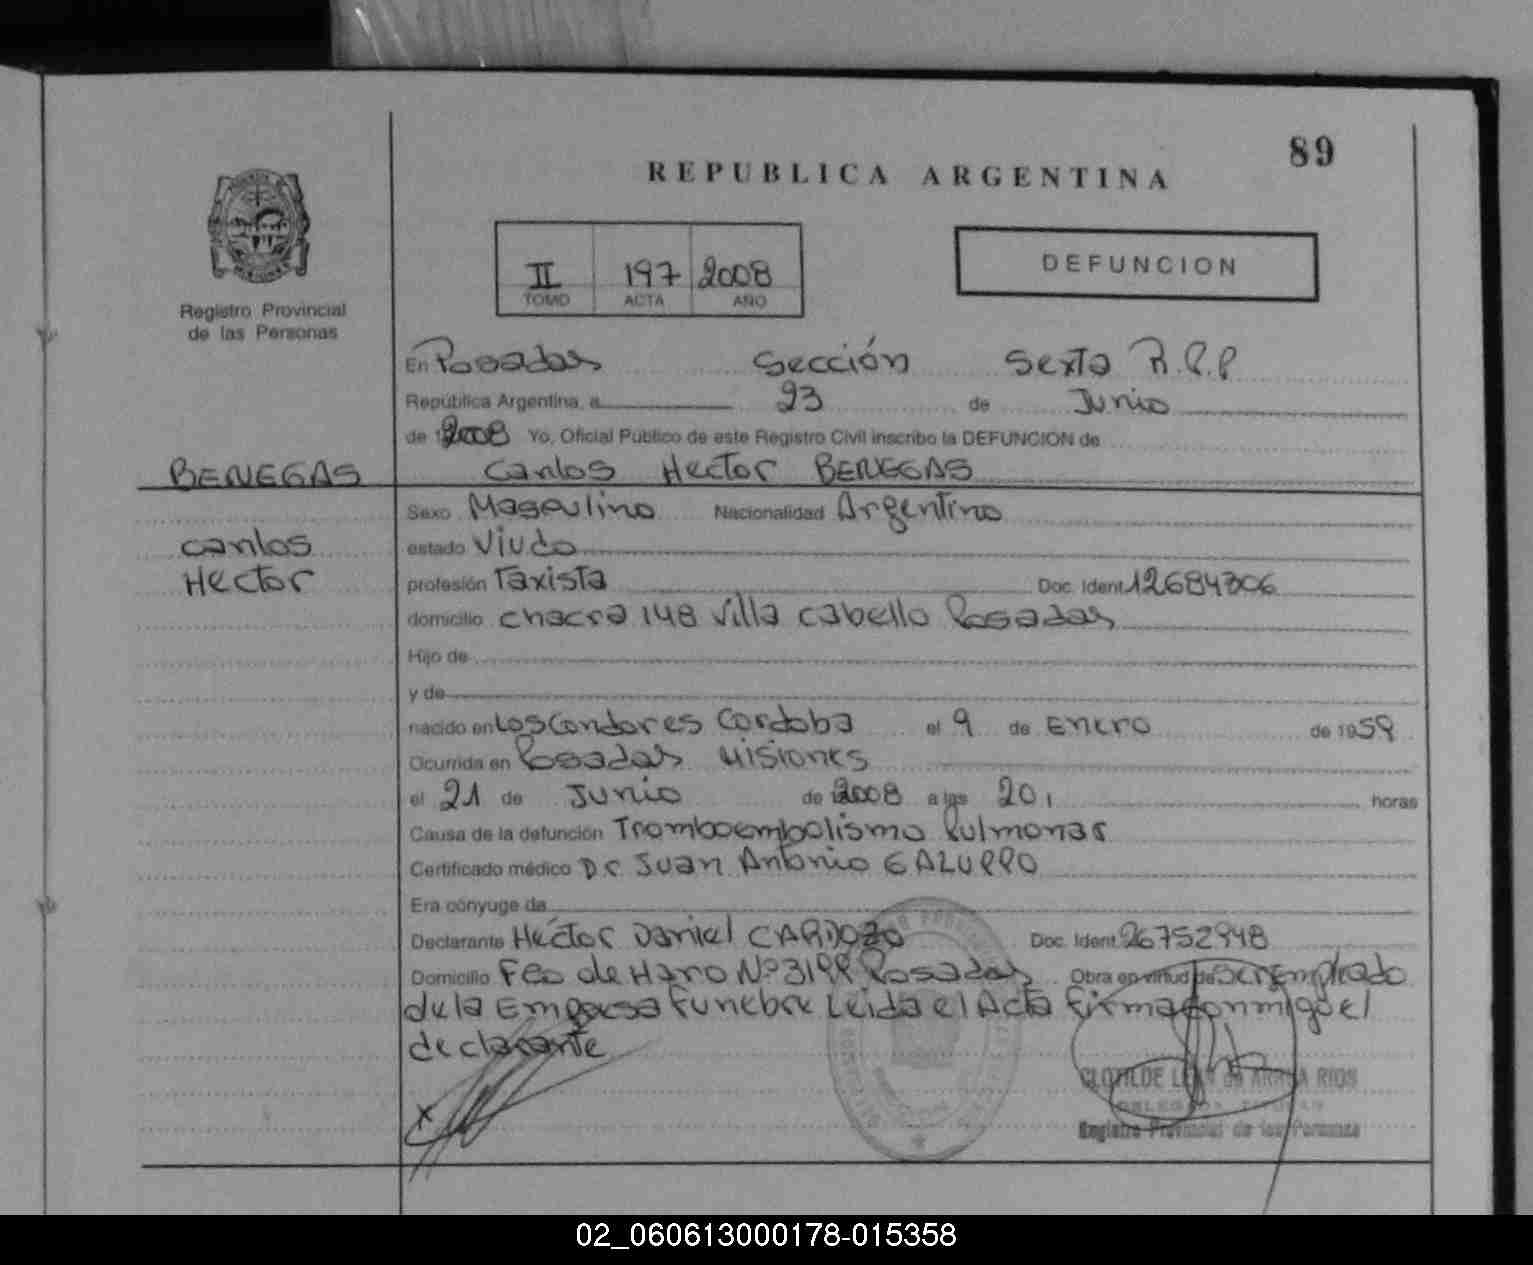 89
REPUBLICA ARGENTINA
II 197 2008
TOMO ACTA AÑO
DEFUNCION
Registro Provincial
de las Personas
En Posadas Sección Sexta R.P.P
República Argentina, a 23 de Junio
de 2008 Yo, Oficial Público de este Registro Civil inscribo la DEFUNCION de
BENEGAS Carlos Hector BENEGAS
Sexo Masculino Nacionalidad Argentino
Carlos estado Viudo
Hector profesión Taxista Doc. Ident 12684306
domicilio chacra 148 Villa Cabello Posadas
Hijo de
y de
nacido en Los Condores Cordoba el 9 de Enero de 1959
Ocurrida en Posadas Misiones
el 21 de Junio de 2008 a las 20, horas
Causa de la defunción Tromboembolismo Pulmonar
Certificado médico Dr Juan Antonio GALUPPO
Era cónyuge de
Declarante Héctor Daniel CARDOZO Doc. Ident. 26752948
Domicilio Fco de Haro Nº 3199 Posadas Obra en virtud de ser Empleado
de la Empresa Funebre Leida el Acta firma conmigo el
declarante
X
CLOTILDE de RIOS
Registro Provincial de las Personas
02_060613000178-015358